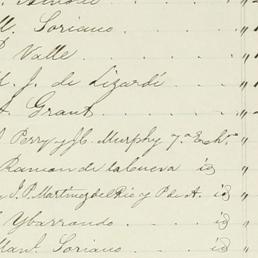 M. Soriano . . . . "
P. Valle . . . . "
M. J. de Lizardi . . . "
A. Grant . . . . "
J. Perry y J. C. Murphy 7a Ech. "
Ramon de la Cueva id "
y J. P. Martinez del Rio y P. de A. id "
Ybarrondo . . id "
Man. Soriano . . id "